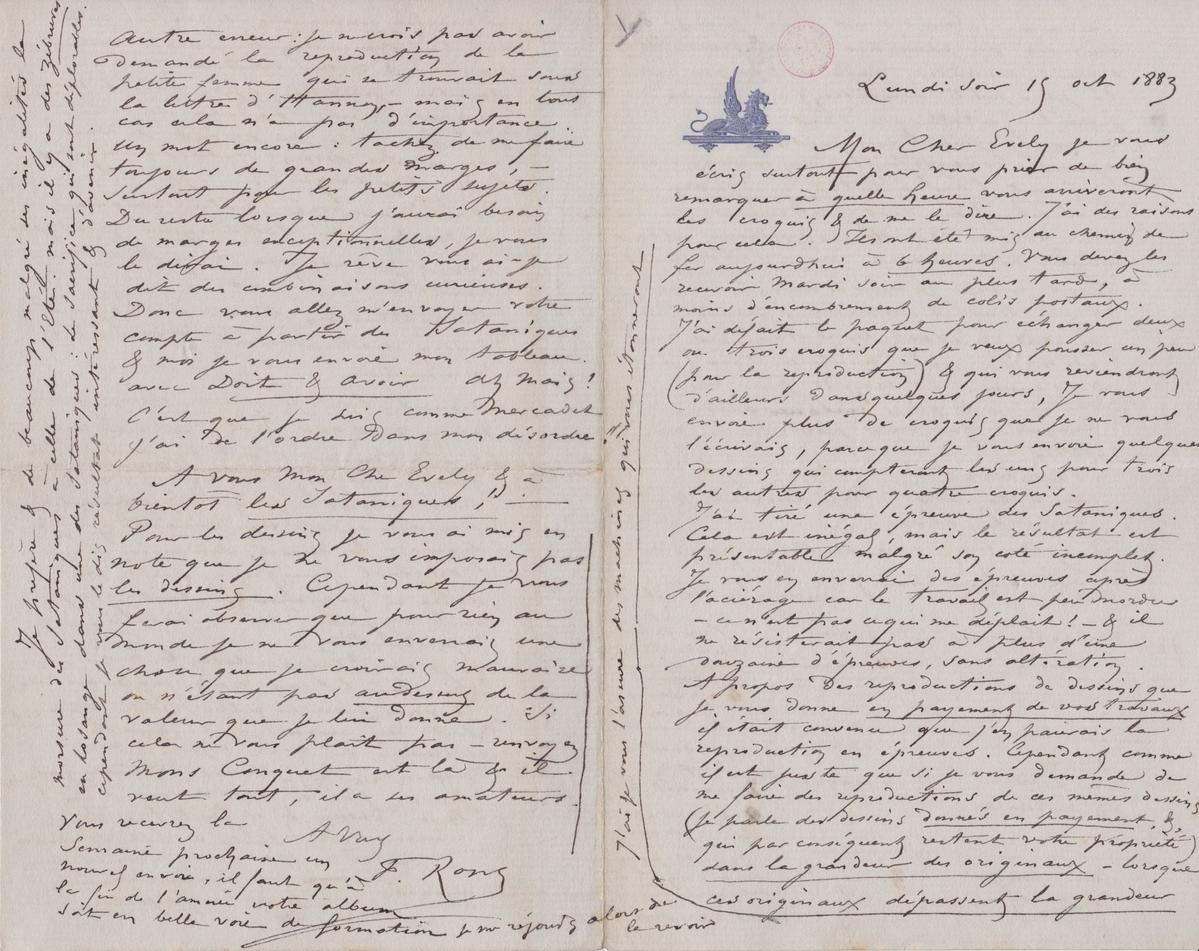 Lundi soir 15 oct 1883
Mon Cher Evely je vous
écris surtout pour vous prier de bien
remarquer à quelle heure vous arriveront
les croquis & de me le dire. J'ai des raisons
pour cela. Ils ont été mis au chemin de
fer aujourdhui à 6 heures. Vous devez les
recevoir Mardi soir au plus tard, à
moins d'encombrement de colis postaux.
J'ai défait le paquet pour échanger deux
ou trois croquis que je veux pousser un peu
(pour la reproduction) & qui vous reviendront
d'ailleurs dans quelques jours, Je vous
envoie plus de croquis que je ne vous
l'écrivais, parceque je vous envoie quelques
dessins qui compteront les uns pour trois
les autres pour quatre croquis.
J'ai tiré une épreuve des Sataniques.
Cela est inégal, mais le résultat est
présentable malgré son coté incomplet.
Je vous en enverrai des épreuves après
l'aciérage car le travail est peu mordu
– ce n'est pas ce qui me déplait! – & il
ne résisterait pas à plus d'une
douzaine d'épreuves, sans altération.
A propos des reproductions de dessins que
je vous donne en payement de vos travaux
il était convenu que j'en paierais la
reproduction en épreuves. Cependant comme
il est juste que si je vous demande de
me faire des reproductions de ces mêmes dessins
(je parle des dessins donnés en payement, &,
qui par conséquent restent votre propriété)
dans la grandeur des originaux – lorsque
ces originaux dépassent la grandeur
J'ai je vous l'assure des matrices qui vous étonneront
Autre erreur: je ne crois pas avoir
demandé la reproduction de la
petite femme qui se trouvait sous
la lettre d'Hannon, – mais en tous
cas cela n'a pas d'importance
Un mot encore: tachez de me faire
toujours de grandes marges, –
surtout pour les petits sujets.
Du reste lorsque j'aurai besoin
de marges exceptionnelles, je vous
le dirai. Je rêve vous ai-je
dit des combinaisons curieuses.
Donc vous allez m'envoyer votre
compte à partir des Sataniques
& moi je vous envoie mon tableau.
avec Doit & avoir ah mais!
C'est que je suis comme Mercadet
j'ai de l'ordre dans mon désordre"
A vous Mon Cher Evely & à
bientot les Sataniques! –
Pour les dessins je vous ai mis en
note que je ne vous imposais pas
les dessins. Cependant je vous
ferai observer que pour rien au
monde je ne vous enverrais une
chose que je croirais mauvaise
ou n'étant pas audessus de la
valeur que je lui donne. Si
cela ne vous plait pas – renvoyez
Mons Conquet est là & il
veut tout, il a ses amateurs.
A Vous
F. Rops
Vous recevrez la
Semaine prochaine un
nouvel envoi, il faut qu'à
la fin de l'année votre album
soit en belle voie de formation je me réjouis alors de
le revoir
Je préfère & de beaucoup malgré ses inégalités la
morsure des Sataniques à celle de l'Eté mais il y a des zébrures
en losange dans une des Sataniques: Le Sacrifice qui sont déplorables.
cependant je vous le dis résultat intéressant & d'avenir.